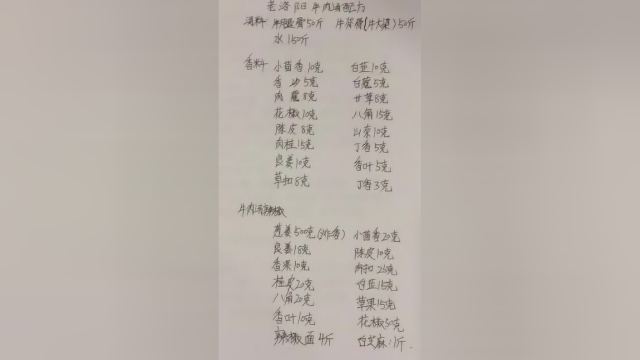 老洛阳牛肉汤配方
汤料 牛腿骨50斤 牛脊骨(牛大梁)50斤
水150斤
香料 小茴香10克 白芷10克
香砂5克 白蔻5克
肉蔻8克 甘草8克
花椒10克 八角15克
陈皮8克 山奈10克
肉桂15克 丁香5克
良姜10克 香叶5克
草扣8克 丁香3克
牛肉汤辣椒
葱姜500克(炸香) 小茴香20克
良姜18克 陈皮10克
香果10克 肉扣25克
桂皮20克 白芷15克
八角20克 草果15克
香叶10克 花椒50克
辣椒面4斤 白芝麻1斤